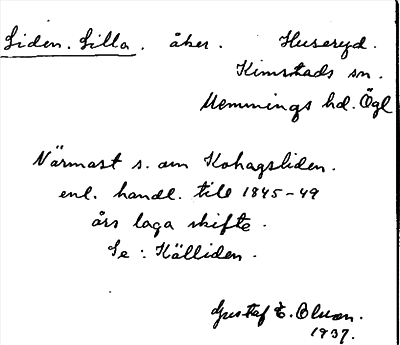 Liden. Lilla. åker. Huseryd.
Kimstads sn.
Memmings hd. Ögl
Närmast s. om Kohagsliden.
enl. handl. till 1845-49
års laga skifte.
Se: Källiden.
Gustaf E. Olsson.
1937.